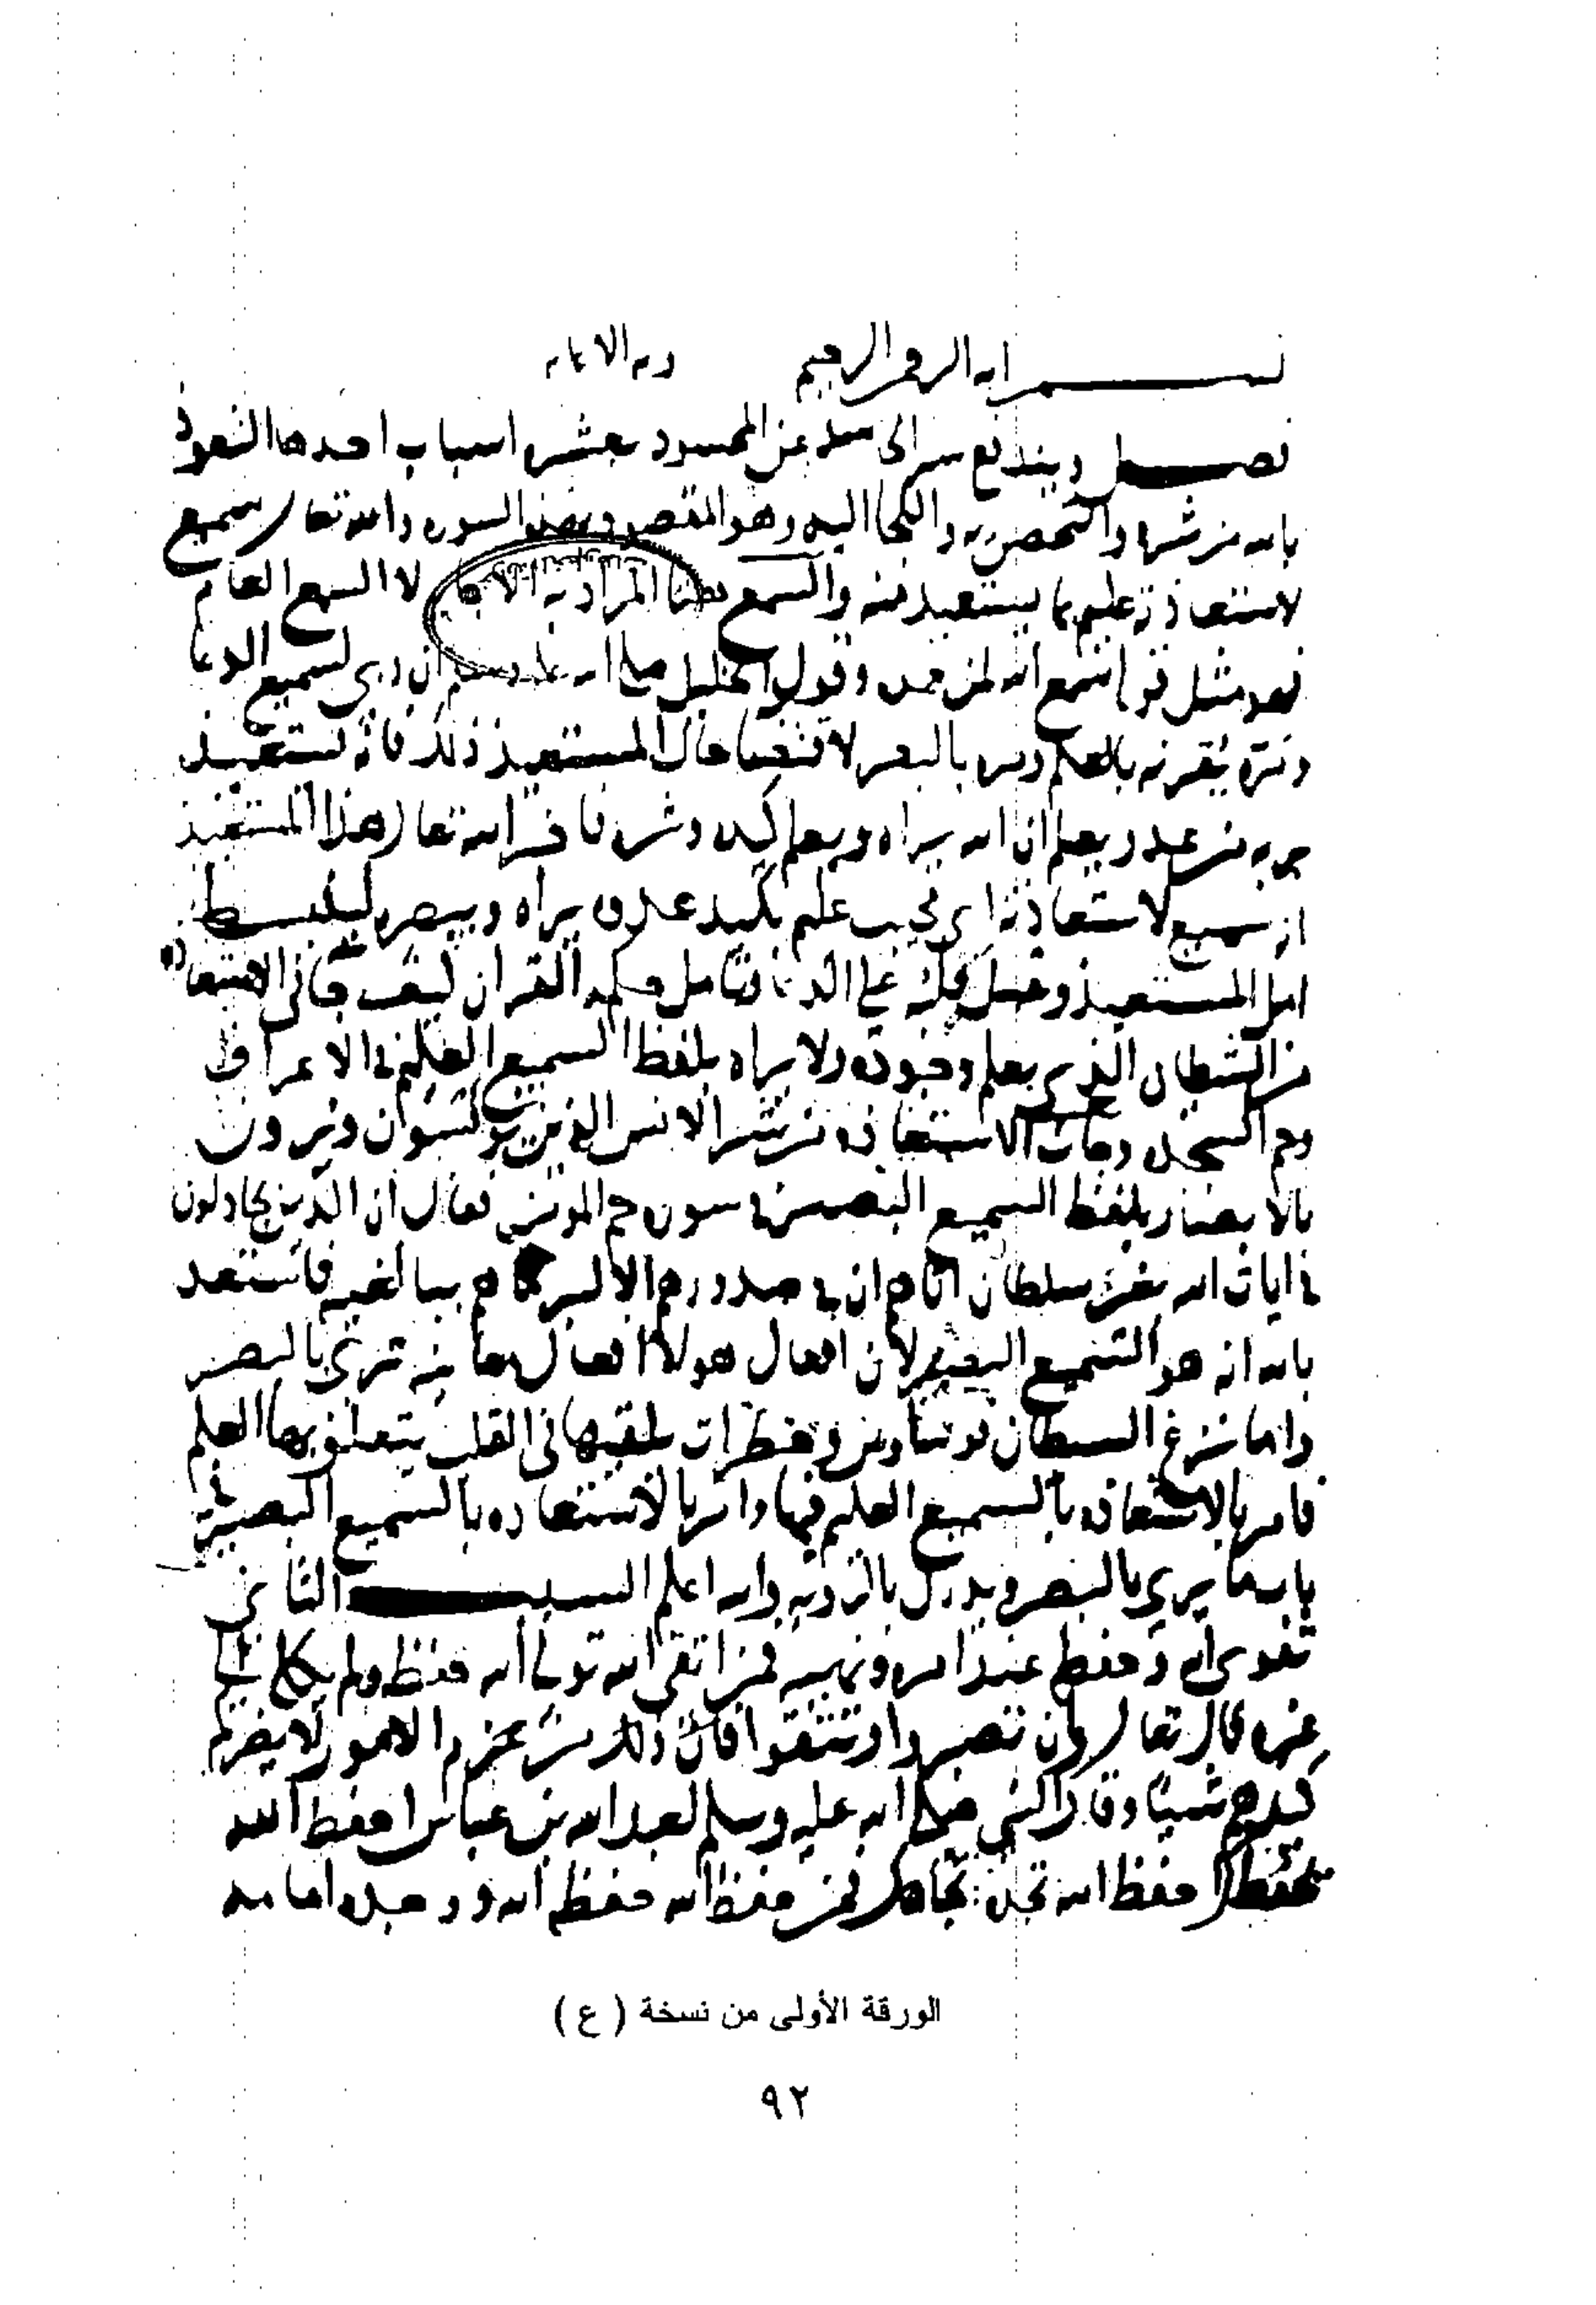 بسم الله الرحمن الرحيم وبه الاعانه
فصل ويندفع شر الحاسد عن المحسود بعشره اسباب احدها التعوذ
بالله من شره والتحصن به واللجا اليه وهو المقصود بهذه السوره والله تعالى سميع
لاستعاذته عليم بما يستعيذ منه والسمع هنا المراد به الاجابه لا السمع العام
فهو مثل قوله سمع الله لمن حمده وقول الخليل صلى الله عليه وسلم ان ربي لسميع الدعا
ومره يقرنه بالعلم ومره بالبصر لاقتضا حال المستعيذ ذلك فانه يستعيذ
به من عدو يعلم ان الله يراه ويعلم كيده وشره فاخبر الله تعالى هذا المستعيذ
انه سميع لاستعاذته اي مجيب عليم بكيد عدوه يراه ويبصره لينبسط
امل المستعيذ وحمل قلبه على الدعا وتامل حكمه القران كيف جا في الاستعاذه
من الشيطان الذي يعلم وجوده ولا يراه بلفظ السميع العليم في الاعراف
وحم السجده وجات الاستعاذه من شر الانس الذين يونسون ويرون
بالابصار بلفظ السميع البصير في سوره حم المومن فقال ان الذين يجادلون
في ايات الله بغير سلطان اتاهم ان في صدورهم الا كبر ما هم ببالغيه فاستعذ
بالله انه هو السميع البصير لان افعال هولا افعال معاينه ترى بالبصر
واما نزغ الشيطان فوساوس وخطرات يلقيها في القلب يتعلق بها العلم
فامر بالاستعاذه بالسميع العليم فيها وامر بالاستعاذه بالسميع البصير في
باب ما يرى بالبصر ويدرك بالرويه والله اعلم السبب الثاني
تقوى الله وحفظه عند امره ونهيه فمن اتقى الله تولى الله حفظه ولم يكله الى
غيره قال تعالى وان تصبروا وتتقوا فان ذلك من عزم الامور لا يضركم
كيدهم شيئا وقال النبي صلى الله عليه وسلم لعبد الله بن عباس احفظ الله
يحفظك احفظ الله تجده تجاهك فمن حفظ الله حفظه الله ووجده امامه
الورقة الأولى من نسخة ( ع )
٩٢